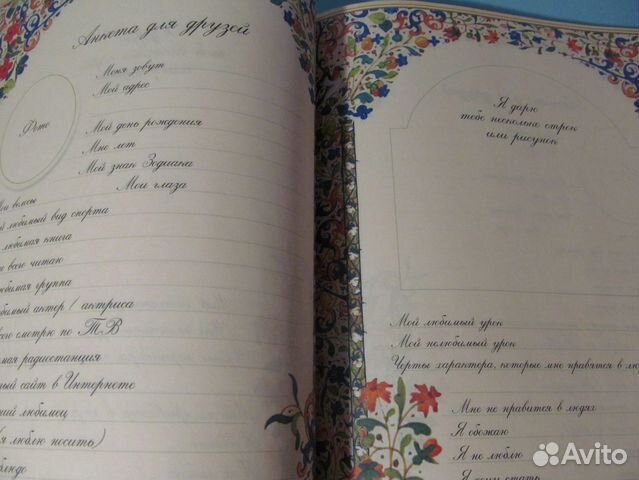 Анкета для друзей
Фото
Меня зовут
Мой адрес
Мой день рождения
Мне лет
Мой знак Зодиака
Мои глаза
Мои волосы
й любимый вид спорта
любимая книга
всего читаю
любимая группа
бимый актер / актриса
всего смотрю по ТВ
мая радиостанция
ый сайт в Интернете
ий любимец
(я люблю носить)
блюдо
Я дарю
тебе несколько строк
или рисунок
Мой любимый урок
Мой нелюбимый урок
Черты характера, которые мне нравятся в лю
Мне не нравится в людях
Я обожаю
Я не люблю
Я хочу стать
Avito